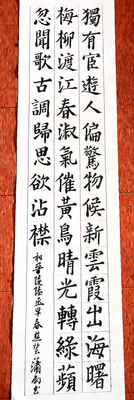 獨有宦遊人偏驚物候新雲霞出海曙
梅柳渡江春淑氣催黃鳥晴光轉綠蘋
忽聞歌古調歸思欲沾襟 和晉陵陸丞早春遊望 瀟書